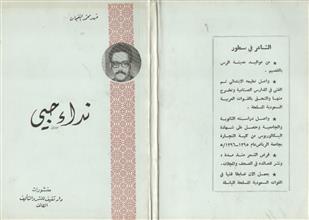 فهد محمد
نداء حبي
منشورات
دار ثقيف للنشر والتأليف
الطائف
الشاعر في سطور
من مواليد مدينة الرس
بالقصيم .
واصل تعليمه الابتدائي ثم
الفني في المدارس الصناعية وتخرج
منها والتحق بالقوات العربية
السعودية المسلحة .
واصل دراسته الثانوية
والجامعية وحصل على شهادة
البكالوريوس من كلية التجارة
بجامعة الرياض عام ١٣٩٥ - ١٣٩٦ هـ
قرض الشعر منذ مدة
ونشر قصائده في الصحف والمجلات .
يعمل الآن ضابطا فنيا في
القوات السعودية المسلحة الباسلة